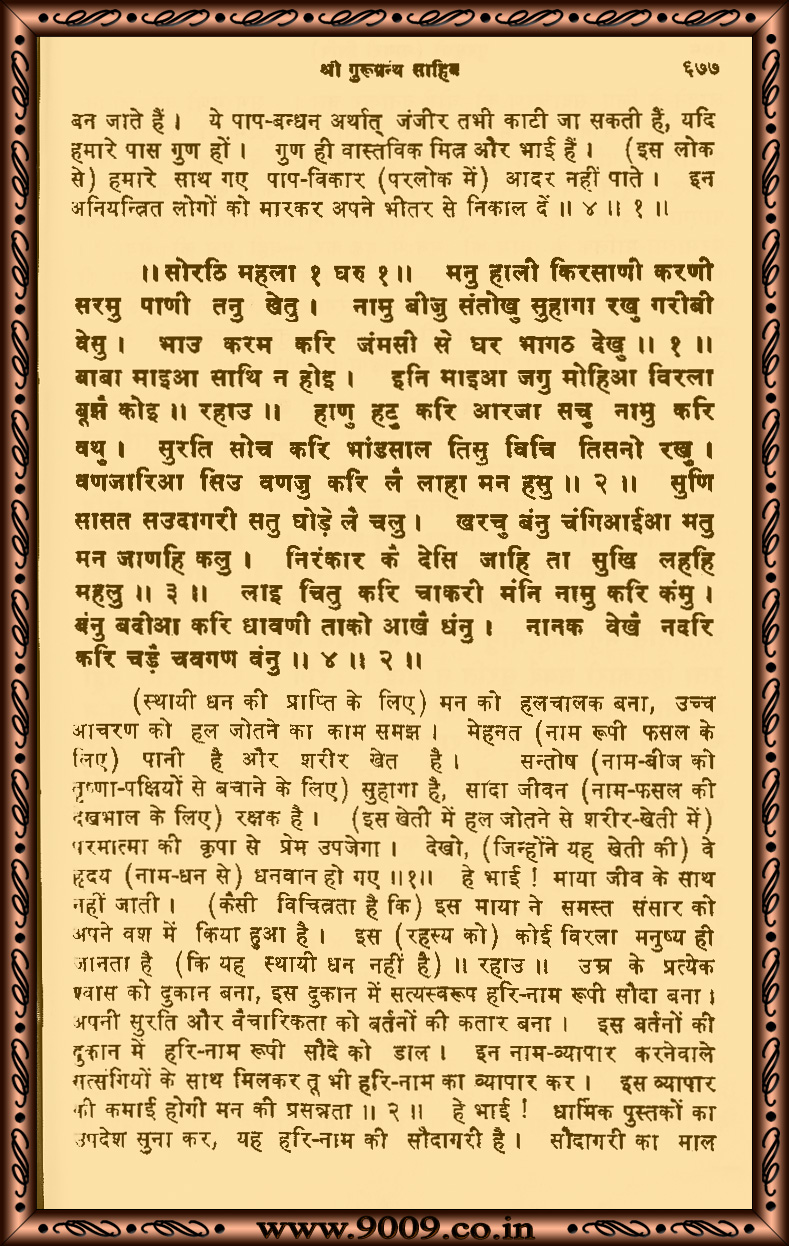 श्री गुरूग्रन्थ साहिब ६७७
बन जाते हैं। ये पाप-बन्धन अर्थात् जंजीर तभी काटी जा सकती हैं, यदि
हमारे पास गुण हों। गुण ही वास्तविक मित्र और भाई हैं। (इस लोक
से) हमारे साथ गए पाप-विकार (परलोक में) आदर नहीं पाते। इन
अनियन्त्रित लोगों को मारकर अपने भीतर से निकाल दें॥ ४॥ १॥
॥सोरठि महला १ घरु १॥ मनु हाली किरसाणी करणी
सरमु पाणी तनु खेतु। नामु बीजु संतोखु सुहागा रखु गरीबी
वेसु। भाउ करम करि जंमसी से घर भागठ देखु॥ १॥
बाबा माइआ साथि न होइ। इनि माइआ जगु मोहिआ विरला
बूझै कोइ॥ रहाउ॥ हाणु हटु करि आरजा सचु नामु करि
वथु। सुरति सोच करि भांडसाल तिसु विचि तिसनो रखु।
वणजारिआ सिउ वणजु करि लै लाहा मन हसु॥ २॥ सुणि
सासत सउदागरी सतु घोड़े लै चलु। खरचु बंनु चंगिआईआ मतु
मन जाणहि कलु। निरंकार कै देसि जाहि ता सुखि लहहि
महलु॥ ३॥ लाइ चितु करि चाकरी मंनि नामु करि कंमु।
बंनु बदीआ करि धावणी ताको आखै धंनु। नानक वेखै नदरि
करि चड़ै चवगण वंनु॥ ४॥ २॥
(स्थायी धन की प्राप्ति के लिए) मन को हलचालक बना, उच्च
आचरण को हल जोतने का काम समझ। मेहनत (नाम रूपी फसल के
लिए) पानी है और शरीर खेत है। सन्तोष (नाम-बीज को
तृष्णा-पक्षियों से बचाने के लिए) सुहागा है, सादा जीवन (नाम-फसल की
देखभाल के लिए) रक्षक है। (इस खेती में हल जोतने से शरीर-खेती में)
परमात्मा की कृपा से प्रेम उपजेगा। देखो, (जिन्होंने यह खेती की) वे
हृदय (नाम-धन से) धनवान हो गए॥१॥ हे भाई! माया जीव के साथ
नहीं जाती। (कैसी विचित्रता है कि) इस माया ने समस्त संसार को
अपने वश में किया हुआ है। इस (रहस्य को) कोई विरला मनुष्य ही
जानता है (कि यह स्थायी धन नहीं है)॥ रहाउ॥ उम्र के प्रत्येक
श्वास को दुकान बना, इस दुकान में सत्यस्वरूप हरि-नाम रूपी सौदा बना।
अपनी सुरति और वैचारिकता को बर्तनों की कतार बना। इस बर्तनों की
दुकान में हरि-नाम रूपी सौदे को डाल। इन नाम-व्यापार करनेवाले
सत्संगियों के साथ मिलकर तू भी हरि-नाम का व्यापार कर। इस व्यापार
की कमाई होगी मन की प्रसन्नता॥ २॥ हे भाई! धार्मिक पुस्तकों का
उपदेश सुना कर, यह हरि-नाम की सौदागरी है। सौदागरी का माल
www.9009.co.in